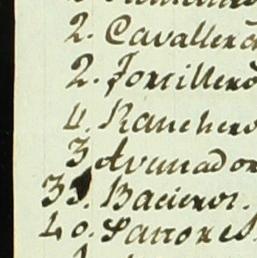 2. Cavallero
2. Torcillero
4. Ranchero
3 Avunador
33. Bacieros.
40. Pastores.